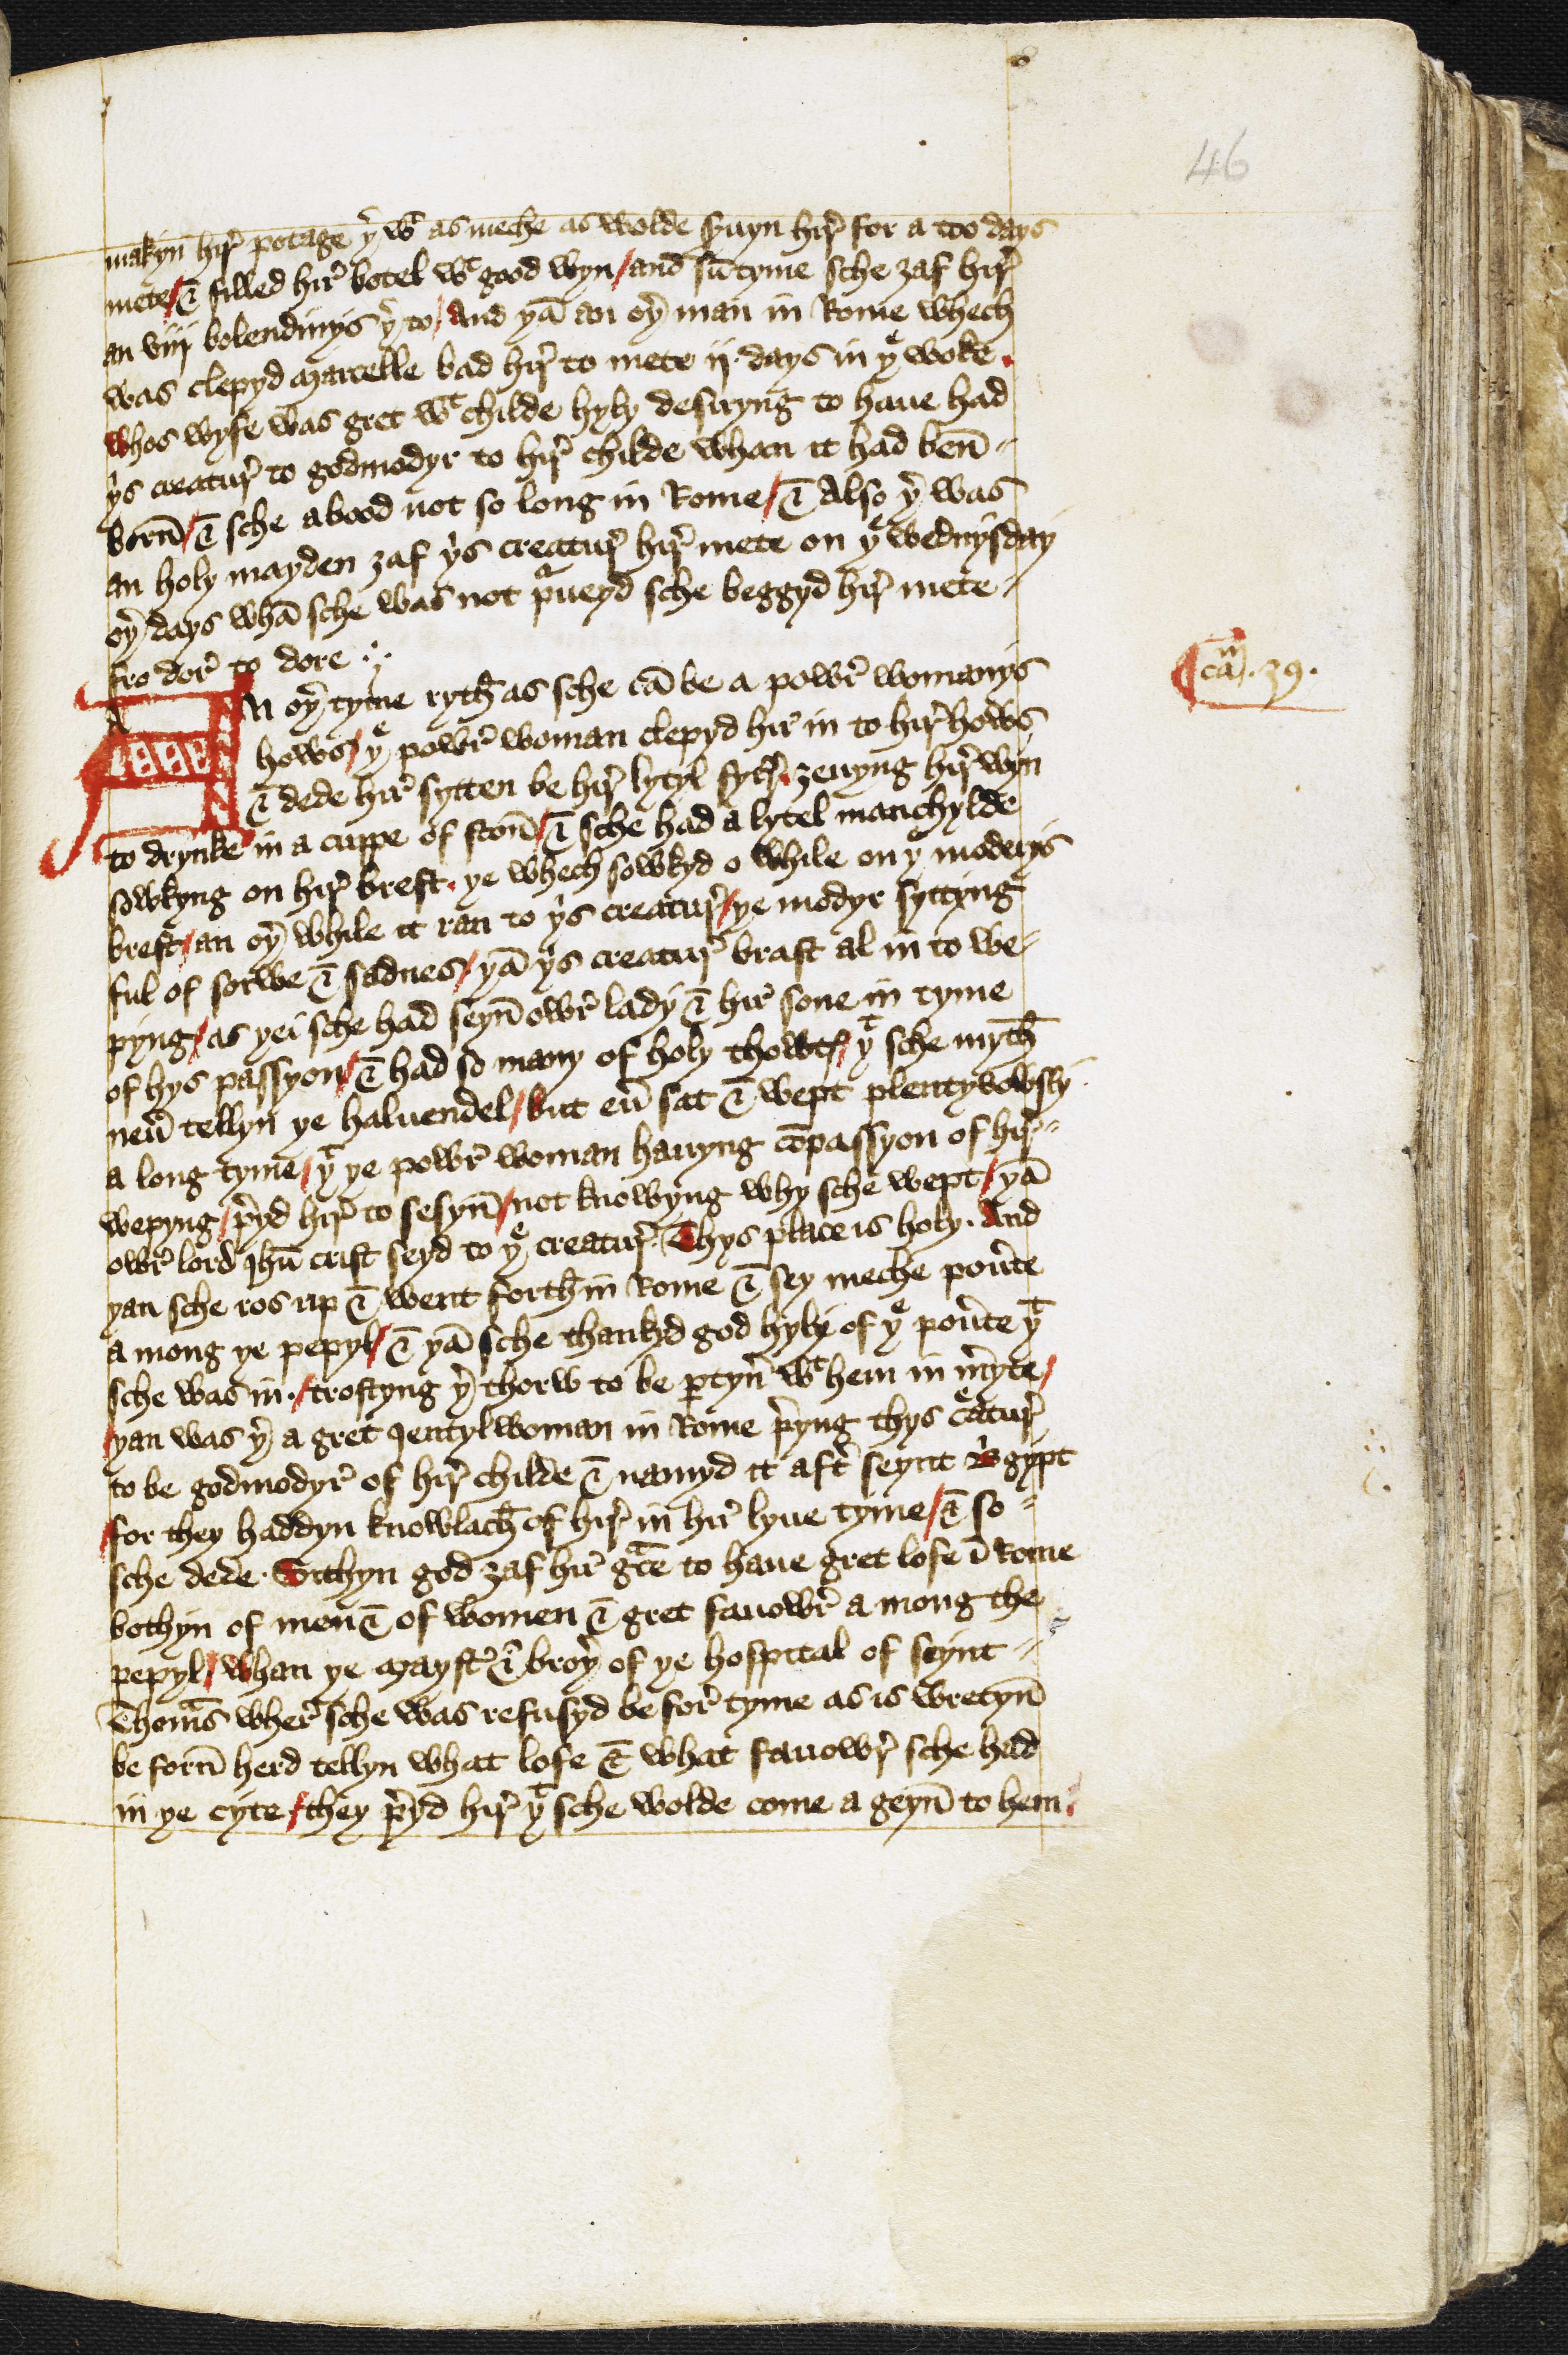 46
makyn hir potage þ̾ wt as meche as wolde seruyn hir for a too days
mete / & filled hir botel wt good wyn / and sūtyme sche ȝaf hir
an viij bolendinys þ̾ to / And yā an oy̾ man in Rome whech
was clepyd Marcelle bad hir to mete ij. days in yᵉ woke.
whos wyfe was gret wt childe hyly desiryng to haue had
yⁱs creatur̾ to godmodyr to hir childe whan it had ben̄
born̄ / & sche abood not so long in Rome / & Also y̾ was
an holy mayden ȝaf yⁱs creatur̾ hir mete on yᵉ wednysday
oy̾ days whā sche was not pᵘueyd sche beggyd hir mete
fro dor̾ to dore
AN oy̾ tyme ryth as sche cā be a powr̾ womanys
cam. 39.
hows / yᵉ powr̾ woman clepyd hir in to hir hows
& dede hir sytten be hir lytyl fyer̾. ȝeuyng hir wyn
to drynke in a cuppe of ston̄ / & sche had a lytel manchylde
sowkyng on hir brest. ye whech sowkyd o while on yᵉ moderys
brest / an oy̾ while it ran to yⁱs creatur̾ / ye modyr syttyng
ful of sorwe & sadnes / yā yⁱs creatur̾ brast al in to we
pyng / as yei sche had seyn̄ owr̾ lady & hir sone in tyme
of hys passyon / & had so many of holy thowtys / yᵗ sche myth
neu̾ tellyn ye haluendel / but eu̾ sat & wept plentyvowsly
a long tyme / yᵗ ye powr̾ woman hauyng cōpassyon of hir
wepyng / p̾yd hir to sesyn̄ / not knowyng why sche wept / yā
owr̾ lord Ihū crist seyd to yᵉ creatur̾. Thys place is holy. And
yan sche ros up & went forth in Rome & sey meche pou̾te
a mong ye pepyl / & yā sche thankyd god hyly of yᵉ pou̾te yᵗ
sche was in. / trostyng y̾ thorw to be ptyn̾ wt hem in m̾yte /
yan was y̾ a gret jentylwoman in Rome p̾yng thys cᵉatur̾
to be godmodyr̾ of hir childe & namyd it aft̾ seynt Bⁱgypt
for they haddyn knowlach of hir in hir lyue tyme / & so
sche dede. Sithyn god ȝaf hir gᵃce to haue gret lofe ī Rome
bothyn of men & of women & gret fauowr̾ a mong the
pepyl / whan ye Mayst̾ & broy̾ of ye hospital of seynt
Thomᵃs wher̾ sche was refusyd be for̾ tyme as is wretyn̄
be forn̄ herd tellyn what lofe & what fauowr̾ sche had
in ye cyte / they p̾yd hir yᵗ sche wolde come a geyn̄ to hem.